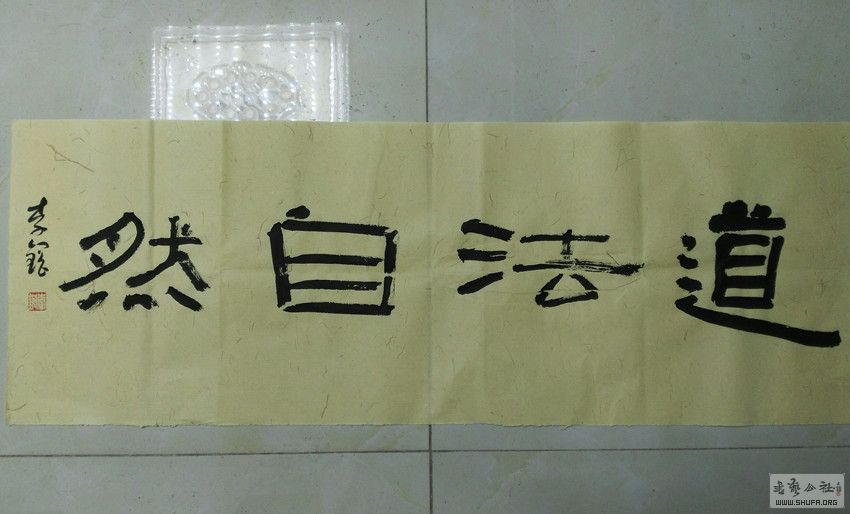 道法自然
書藝公社
WWW.SHUFA.ORG